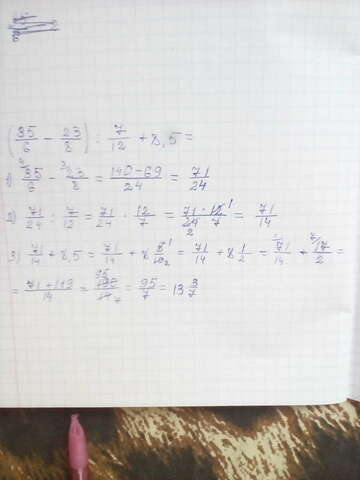 (35/6 − 23/8) : 7/12 + 8,5 =
1) 35/6 − 23/8 = 140−69/24 = 71/24
2) 71/24 : 7/12 = 71/24 · 12/7 = 71·12/24·7 = 71/14
3) 71/14 + 8,5 = 71/14 + 8 5/10 = 71/14 + 8 1/2 = 71/14 + 17/2 =
= 71+119/14 = 190/14 = 95/7 = 13 3/7